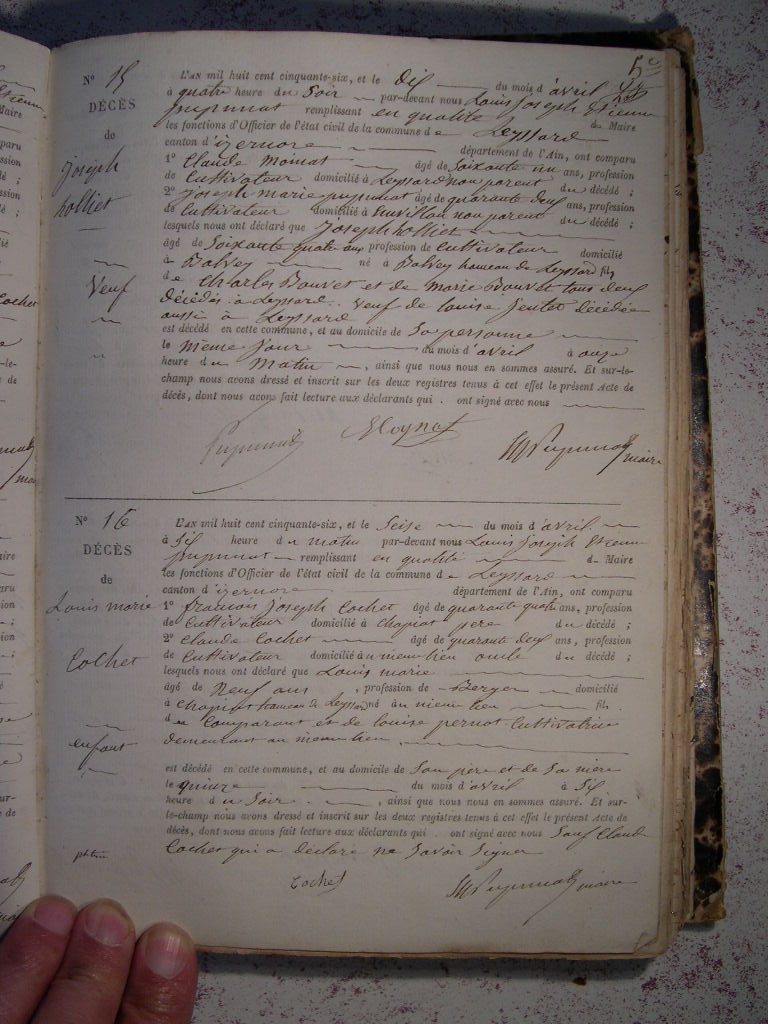 5e
N° 15
DÉCÈS
de
Joseph
holliet
Veuf
L'AN mil huit cent cinquante-six, et le Dix du mois d'avril
à quatre heure du Soir par-devant nous Louis Joseph Etienne
pupunat remplissant en qualité de Maire
les fonctions d'Officier de l'état civil de la commune de Leyssard
canton d'izernore département de l'Ain, ont comparu
1° Claude Moinat âgé de Soixante un ans, profession
de Cultivateur domicilié à Leyssard non parent du décédé ;
2° Joseph marie pupunat âgé de quarante deux ans, profession
de Cultivateur domicilié à Survillon non parent du décédé ;
lesquels nous ont déclaré que Joseph holliet
âgé de Soixante quatre ans profession de Cultivateur domicilié
à Balvey né à Balvey hameau de Leyssard fils
de Charles Bouvet et de Marie Bouvet tous deux
décédés à Leyssard. Veuf de Louise Jeutet décédée
aussi à Leyssard
est décédé en cette commune, et au domicile de Sa personne
le même Jour du mois d'avril à onze
heure du Matin, ainsi que nous nous en sommes assuré. Et sur-le-
champ nous avons dressé et inscrit sur les deux registres tenus à cet effet le présent Acte de
décès, dont nous avons fait lecture aux déclarants qui ont signé avec nous
Pupunat Moynat Pupunat maire
N° 16
DÉCÈS
de
Louis marie
Cochet
enfant
L'AN mil huit cent cinquante-six, et le Seise du mois d'avril
à Six heure du matin par-devant nous Louis Joseph Etienne
pupunat remplissant en qualité de Maire
les fonctions d'Officier de l'état civil de la commune de Leyssard
canton d'izernore département de l'Ain, ont comparu
1° francois Joseph Cochet âgé de quarante quatre ans, profession
de Cultivateur domicilié à Chapiat père du décédé ;
2° Claude Cochet âgé de quarante deux ans, profession
de Cultivateur domicilié au meme lieu oncle du décédé ;
lesquels nous ont déclaré que Louis marie
âgé de Neuf ans, profession de Berger domicilié
à Chapiat hameau de Leyssard né au meme lieu fils
du Comparant et de louise pernot Cultivatrice
demeurant au meme lieu
est décédé en cette commune, et au domicile de Son père et de Sa mère
le quinze du mois d'avril à Six
heure du Soir, ainsi que nous nous en sommes assuré. Et sur-
le-champ nous avons dressé et inscrit sur les deux registres tenus à cet effet le présent Acte de
décès, dont nous avons fait lecture aux déclarants qui ont signé avec nous Sauf Claude
Cochet qui a déclaré ne Savoir Signer
Cochet Pupunat maire